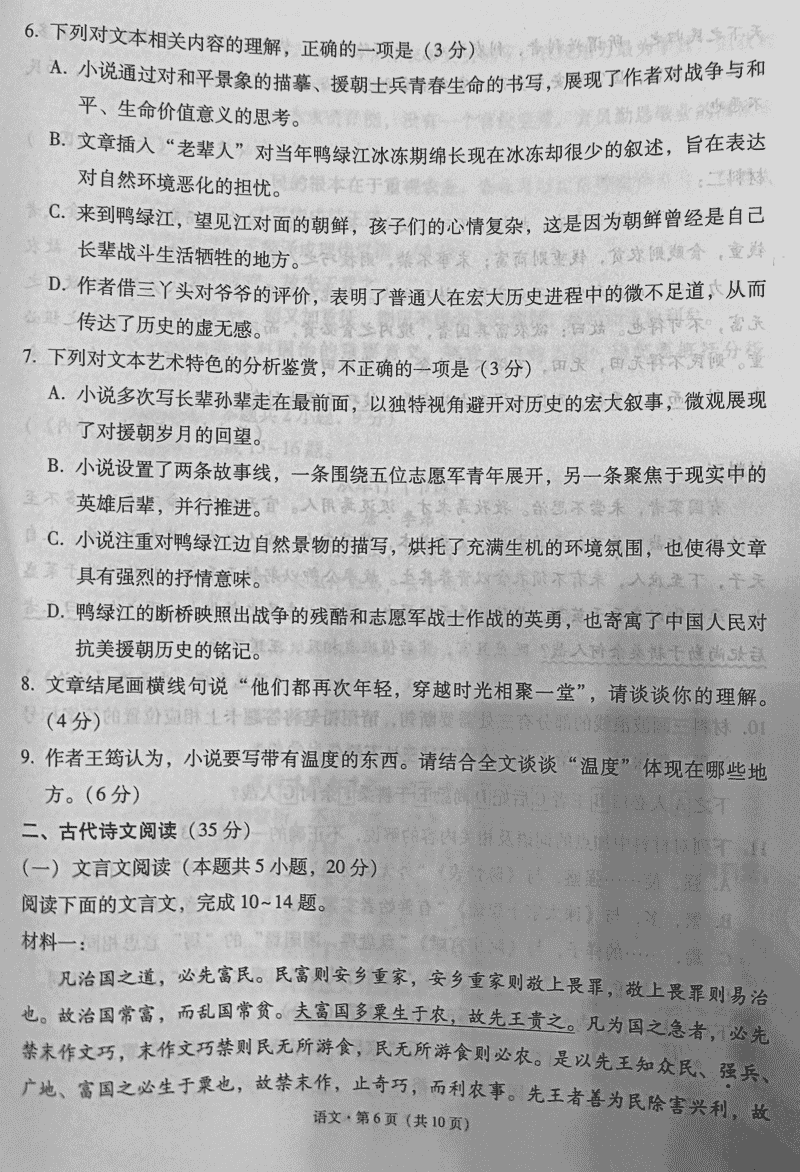 6. 下列对文本相关内容的理解，正确的一项是（3分）
A. 小说通过对和平景象的描摹、援朝士兵青春生命的书写，展现了作者对战争与和
平、生命价值意义的思考。
B. 文章插入“老辈人”对当年鸭绿江冰冻期绵长现在冰冻却很少的叙述，旨在表达
对自然环境恶化的担忧。
C. 来到鸭绿江，望见江对面的朝鲜，孩子们的心情复杂，这是因为朝鲜曾经是自己
长辈战斗生活牺牲的地方。
D. 作者借三丫头对爷爷的评价，表明了普通人在宏大历史进程中的微不足道，从而
传达了历史的虚无感。
7. 下列对文本艺术特色的分析鉴赏，不正确的一项是（3分）
A. 小说多次写长辈孙辈走在最前面，以独特视角避开对历史的宏大叙事，微观展现
了对援朝岁月的回望。
B. 小说设置了两条故事线，一条围绕五位志愿军青年展开，另一条聚焦于现实中的
英雄后辈，并行推进。
C. 小说注重对鸭绿江边自然景物的描写，烘托了充满生机的环境氛围，也使得文章
具有强烈的抒情意味。
D. 鸭绿江的断桥映照出战争的残酷和志愿军战士作战的英勇，也寄寓了中国人民对
抗美援朝历史的铭记。
8. 文章结尾画横线句说“他们都再次年轻，穿越时光相聚一堂”，请谈谈你的理解。
（4分）
9. 作者王筠认为，小说要写带有温度的东西。请结合全文谈谈“温度”体现在哪些地
方。（6分）
二、古代诗文阅读（35分）
（一）文言文阅读（本题共5小题，20分）
阅读下面的文言文，完成10~14题。
材料一：
凡治国之道，必先富民。民富则安乡重家，安乡重家则敬上畏罪，敬上畏罪则易治
也。故治国常富，而乱国常贫。夫富国多粟生于农，故先王贵之。凡为国之急者，必先
禁末作文巧，末作文巧禁则民无所游食，民无所游食则必农。是以先王知众民、强兵、
广地、富国之必生于粟也，故禁末作，止奇巧，而利农事。先王者善为民除害兴利，故
语文·第6页（共10页）